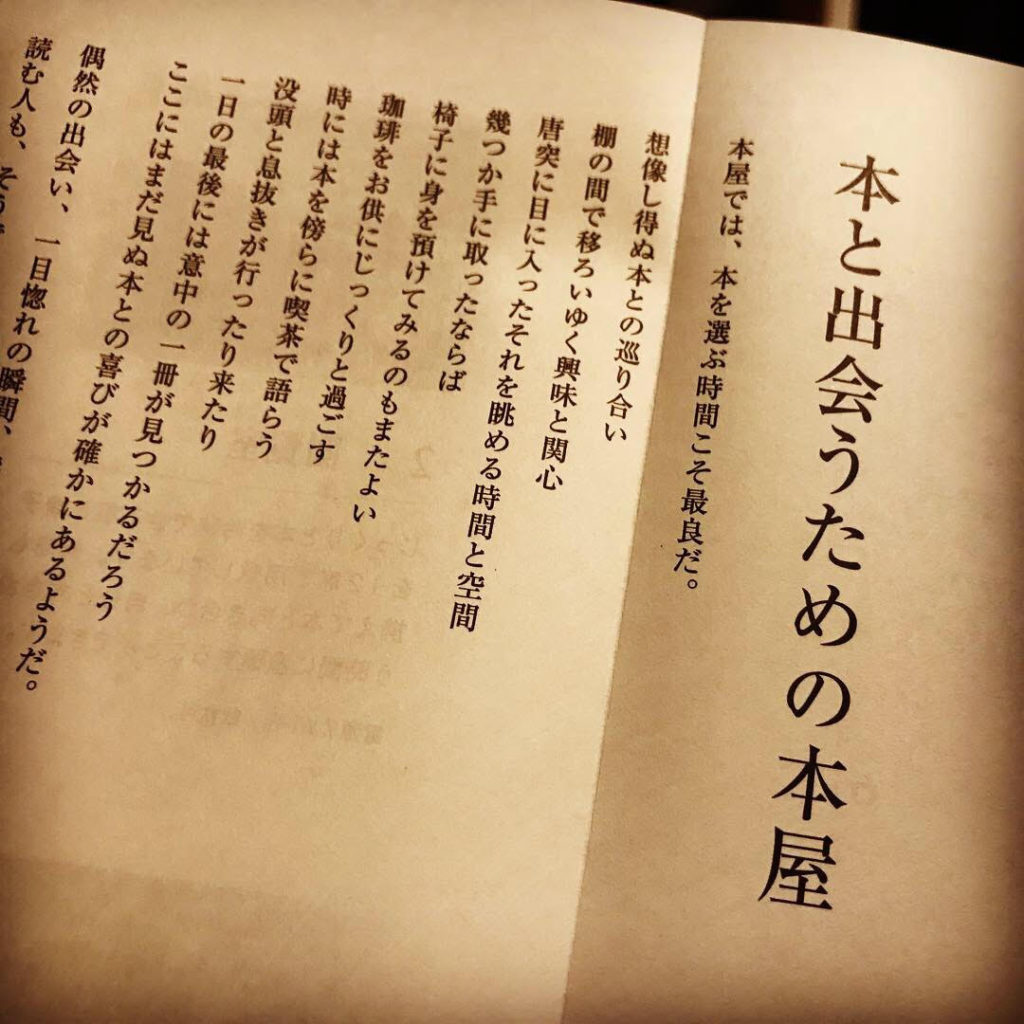 本と出会うための本屋
本屋では、本を選ぶ時間こそ最良だ。
想像し得ぬ本との巡り合い
棚の間で移ろいゆく興味と関心
唐突に目に入ったそれを眺める時間と空間
幾つか手に取ったならば
椅子に身を預けてみるのもまたよい
珈琲をお供にじっくりと過ごす
時には本を傍らに喫茶で語らう
没頭と息抜きが行ったり来たり
一日の最後には意中の一冊が見つかるだろう
ここにはまだ見ぬ本との喜びが確かにあるようだ。
偶然の出会い、一目惚れの瞬間、
読む人も、そう